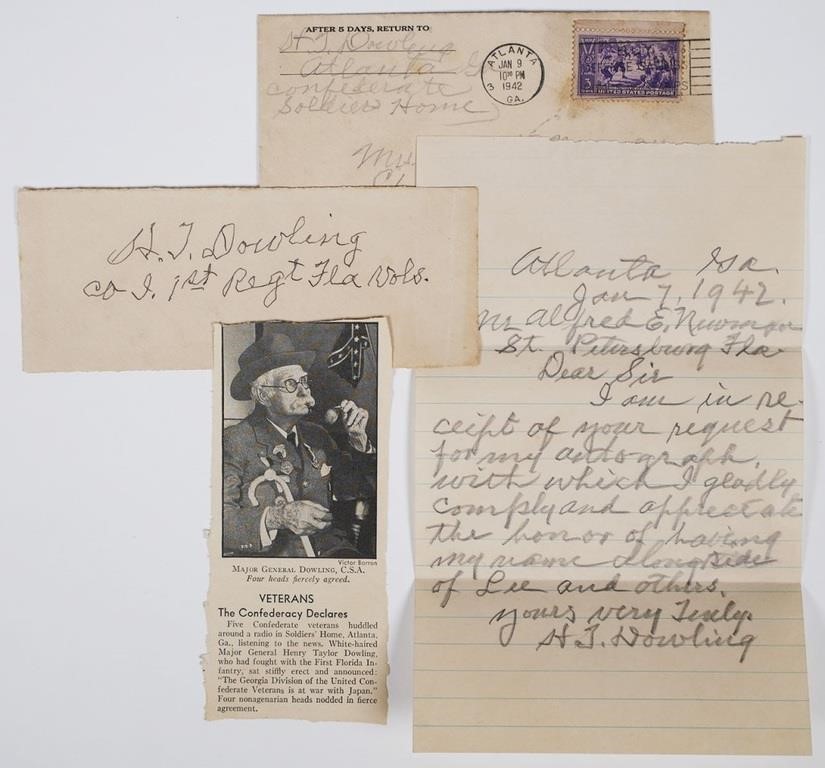 AFTER 5 DAYS, RETURN TO
H.T. Dowling
Atlanta G
Confederate
Soldiers Home
ATLANTA
3
JAN 9
10 PM
1942
GA.
UNITED STATES POSTAGE
H. T. Dowling
Co I. 1st Regt Fla Vols.
Victor Barron
MAJOR GENERAL DOWLING, C.S.A.
Four heads fiercely agreed.
VETERANS
The Confederacy Declares
Five Confederate veterans huddled
around a radio in Soldiers' Home, Atlanta,
Ga., listening to the news. White-haired
Major General Henry Taylor Dowling,
who had fought with the First Florida In-
fantry, sat stiffly erect and announced:
"The Georgia Division of the United Con-
federate Veterans is at war with Japan."
Four nonagenarian heads nodded in fierce
agreement.
Atlanta Ga.
Jan 7, 1942.
Mr Alfred E. Newman
St. Petersburg Fla
Dear Sir
I am in re-
ceipt of your request
for my autograph,
with which I gladly
comply and appreciate
the honor of having
my name alongside
of Lee and others.
yours very Truly.
H T. Dowling